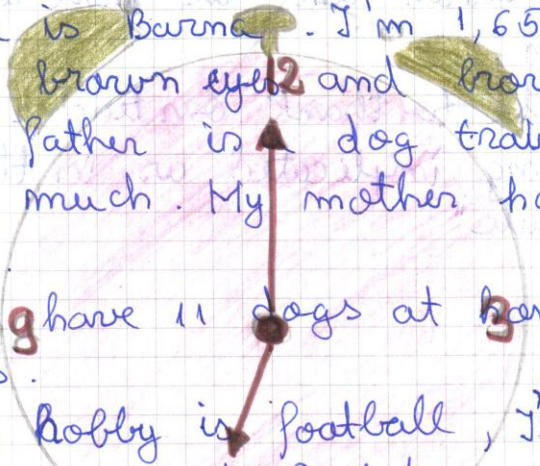 is Barna. I'm 1,65
12
brown eyes and
father is a dog
much. My mother
9 have 11 dogs at 3
hobby is football,